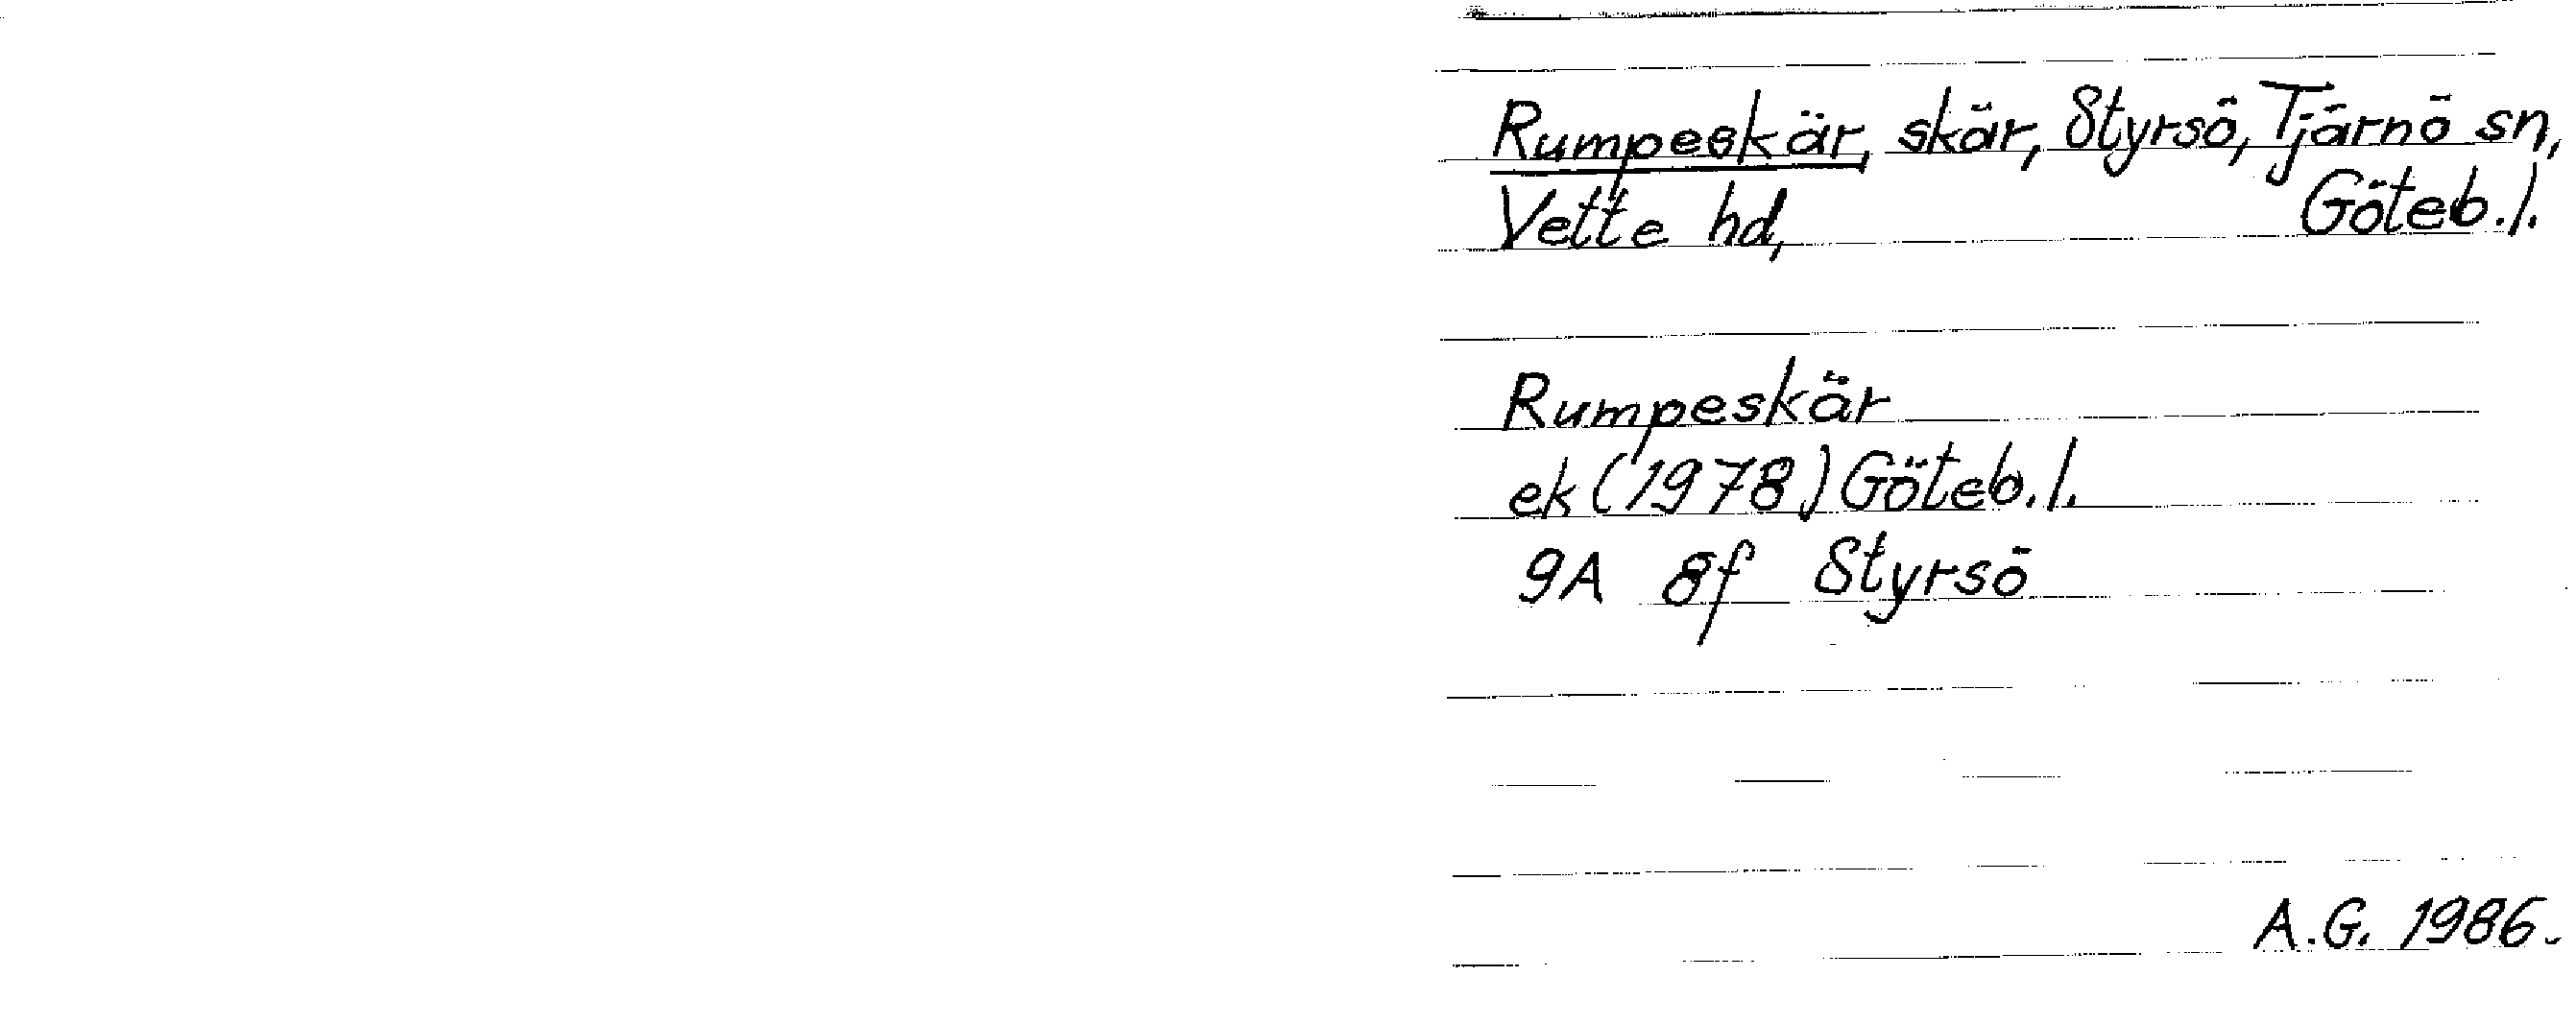 Rumpeskär, skär, Styrsö, Tjärnö sn,
Vette hd, Göteb.l.
Rumpeskär
ek (1978) Göteb.l.
9A 8f Styrsö
A.G. 1986.